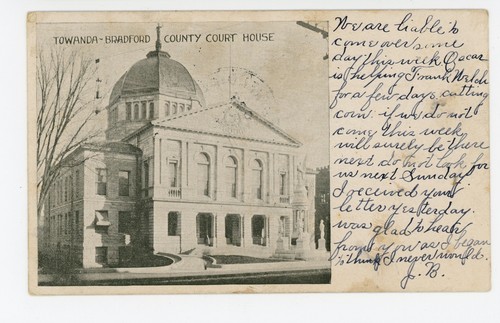 TOWANDA-BRADFORD COUNTY COURT HOUSE
We are liable to
come over some
day this week Oscar
is helping Frank Welch
for a few days cutting
corn. if we do not
come this week
will surely be there
next do not look for
us next Sunday
I received your
letter yesterday.
was glad to hear
from you as I began
to think I never would.
J. B.